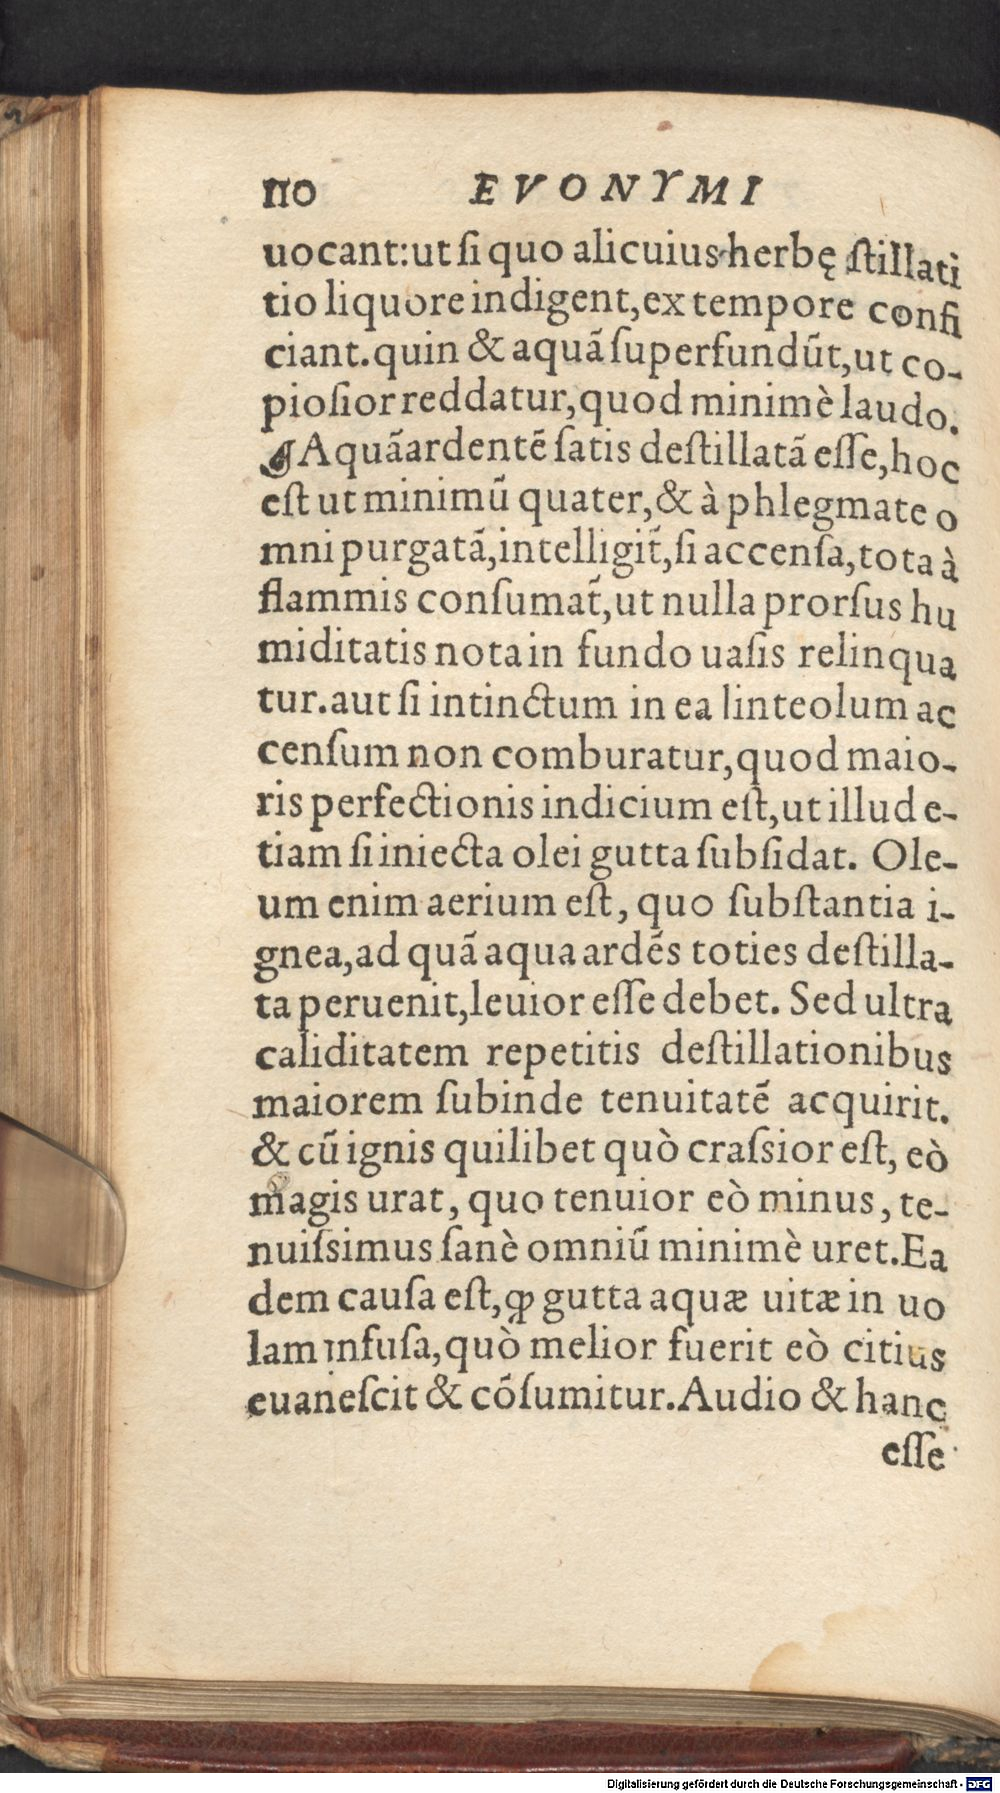 110 EVONYMI
uocant:ut ſi quo alicuius herbę ſtillati
tio liquore indigent,ex tempore confi
ciant.quin & aquã ſuperfundũt,ut co-
pioſior reddatur,quod minimè laudo.
¶Aquã ardentẽ ſatis deſtillatã eſſe,hoc
eſt ut minimũ quater,& à phlegmate o
mni purgatã,intelligit̃,ſi accenſa,tota à
flammis conſumat̃,ut nulla prorſus hu
miditatis nota in fundo uaſis relinqua
tur.aut ſi intinctum in ea linteolum ac
cenſum non comburatur,quod maio-
ris perfectionis indicium eſt,ut illud e-
tiam ſi iniecta olei gutta ſubſidat. Ole-
um enim aerium eſt, quo ſubſtantia i-
gnea,ad quã aqua ardẽs toties deſtilla-
ta peruenit,leuior eſſe debet. Sed ultra
caliditatem repetitis deſtillationibus
maiorem ſubinde tenuitatẽ acquirit.
& cũ ignis quilibet quò craſsior eſt, eò
magis urat, quo tenuior eò minus, te-
nuiſsimus ſanè omniũ minimè uret.Ea
dem cauſa eſt,ꝙ gutta aquæ uitæ in uo
lam infuſa,quò melior fuerit eò citius
euaneſcit & cõſumitur.Audio & hanc
eſſe
Digitalisierung gefördert durch die Deutsche Forschungsgemeinschaft - DFG